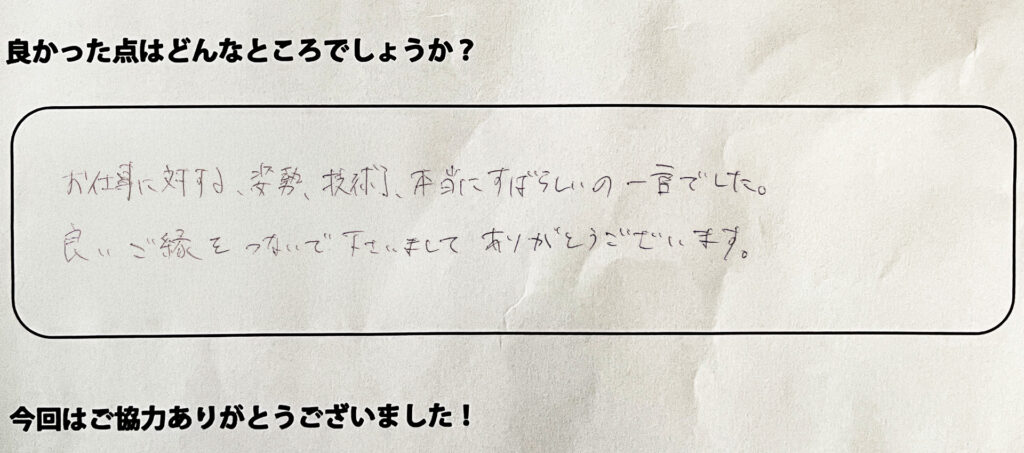 良かった点はどんなところでしょうか？
お仕事に対する、姿勢、技術、本当にすばらしいの一言でした。
良いご縁をつないで下さいまして ありがとうございます。
今回はご協力ありがとうございました！